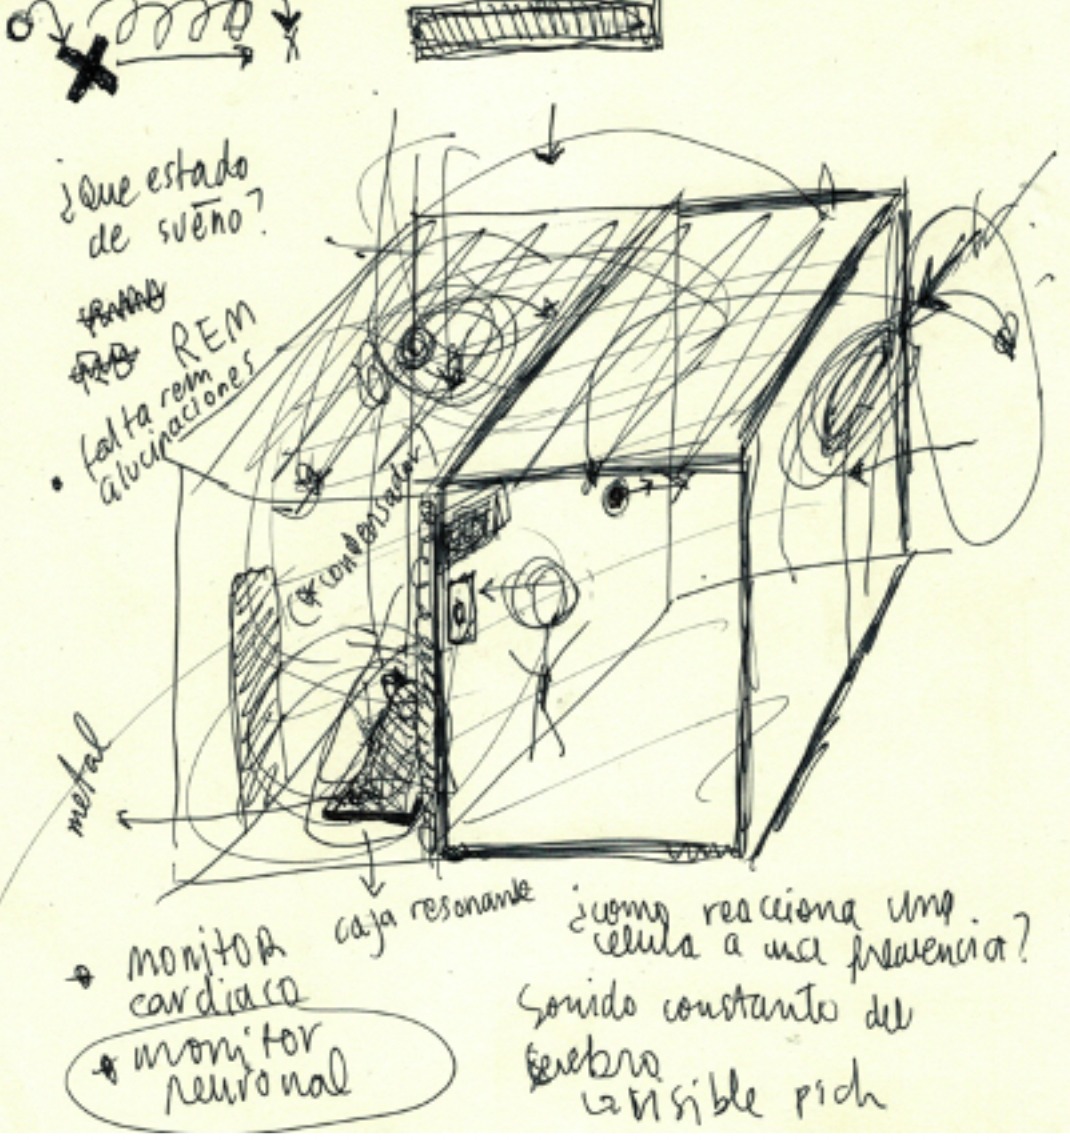 ¿Que estado
de sueño?
REM
falta rem
alucinaciones
(*condensador
metal
caja resonante
monitor
cardiaco
monitor
neuronal
¿como reacciona una
celula a una frecuencia?
Sonido constante del
cerebro
visible pich